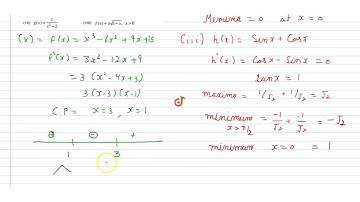 (viii) f(x) = x√(1-x), x > 0
(v) = f(x) = x³ - 6x² + 9x + 15
f'(x) = 3x² - 12x + 9
= 3 (x² - 4x + 3)
3 (x-3) (x-1)
C.P = x = 3, x = 1
⊕ ⊖ +
1 3
Minima = 0 at x = 0
(iii) h(x) = Sinx + Cosx
h'(x) = Cosx - Sinx = 0
tanx = 1
maxima = 1/√2 + 1/√2 = √2
minimum = -1/√2 + -1/√2 = -√2
x > π/2
minimum x=0 = 1